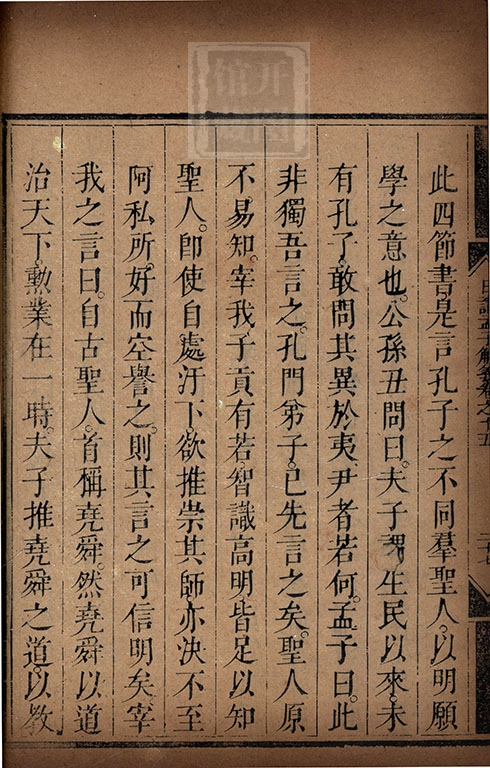 此四節書是言孔子之不同羣聖人以明願
學之意也公孫丑問曰夫子謂生民以來未
有孔子敢問其異於夷尹者若何孟子曰此
非獨吾言之孔門弟子已先言之矣聖人原
不易知宰我子貢有若智識高明皆足以知
聖人即使自處汙下欲推崇其師亦決不至
阿私所好而空譽之則其言之可信明矣宰
我之言曰自古聖人首稱堯舜然堯舜以道
治天下勲業在一時夫子推堯舜之道以教